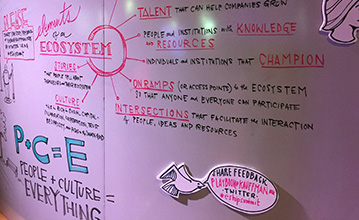 PLEASE
elements
of an
ECOSYSTEM
TALENT THAT CAN HELP COMPANIES GROW
PEOPLE and INSTITUTIONS with KNOWLEDGE
and RESOURCES
INDIVIDUALS and INSTITUTIONS THAT CHAMPION
ONRAMPS (OR ACCESS POINTS) to the ECOSYSTEM
SO THAT ANYONE and EVERYONE CAN PARTICIPATE
INTERSECTIONS THAT FACILITATE the INTERACTION
of PEOPLE, IDEAS AND RESOURCES
STORIES
THAT PEOPLE TELL ABOUT
THEMSELVES and THEIR ECOSYSTEM
CULTURE
P•C=E
PEOPLE + CULTURE =
EVERYTHING
SHARE FEEDBACK
TWITTER:
#eshipsummit